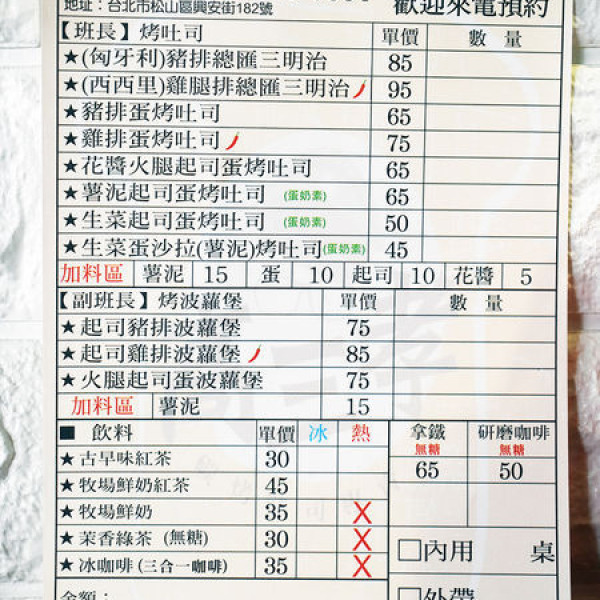 地址：台北市松山區興安街182號
歡迎來電預約
【班長】烤吐司 單價 數 量
★(匈牙利)豬排總匯三明治 85
★(西西里)雞腿排總匯三明治 95
★豬排蛋烤吐司 65
★雞排蛋烤吐司 75
★花醬火腿起司蛋烤吐司 65
★薯泥起司蛋烤吐司 (蛋奶素) 65
★生菜起司蛋烤吐司 (蛋奶素) 50
★生菜蛋沙拉(薯泥)烤吐司(蛋奶素) 45
加料區 薯泥 15 蛋 10 起司 10 花醬 5
【副班長】烤波蘿堡 單價 數 量
★起司豬排波蘿堡 75
★起司雞排波蘿堡 85
★火腿起司蛋波蘿堡 75
加料區 薯泥 15
■ 飲料 單價 冰 熱 拿鐵 無糖 研磨咖啡 無糖
★古早味紅茶 30 65 50
★牧場鮮奶紅茶 45
★牧場鮮奶 35 X
★茉香綠茶 (無糖) 30 X
★冰咖啡 (三合一咖啡) 35 X
□內用 桌
金額：
□外帶